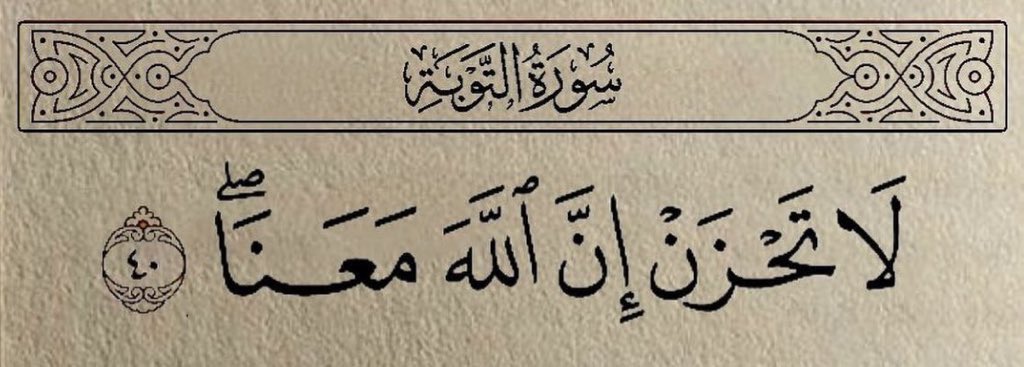 سُورَةُ التَّوْبَةِ
لَا تَحْزَنْ إِنَّ ٱللَّهَ مَعَنَاۖ ٤٠